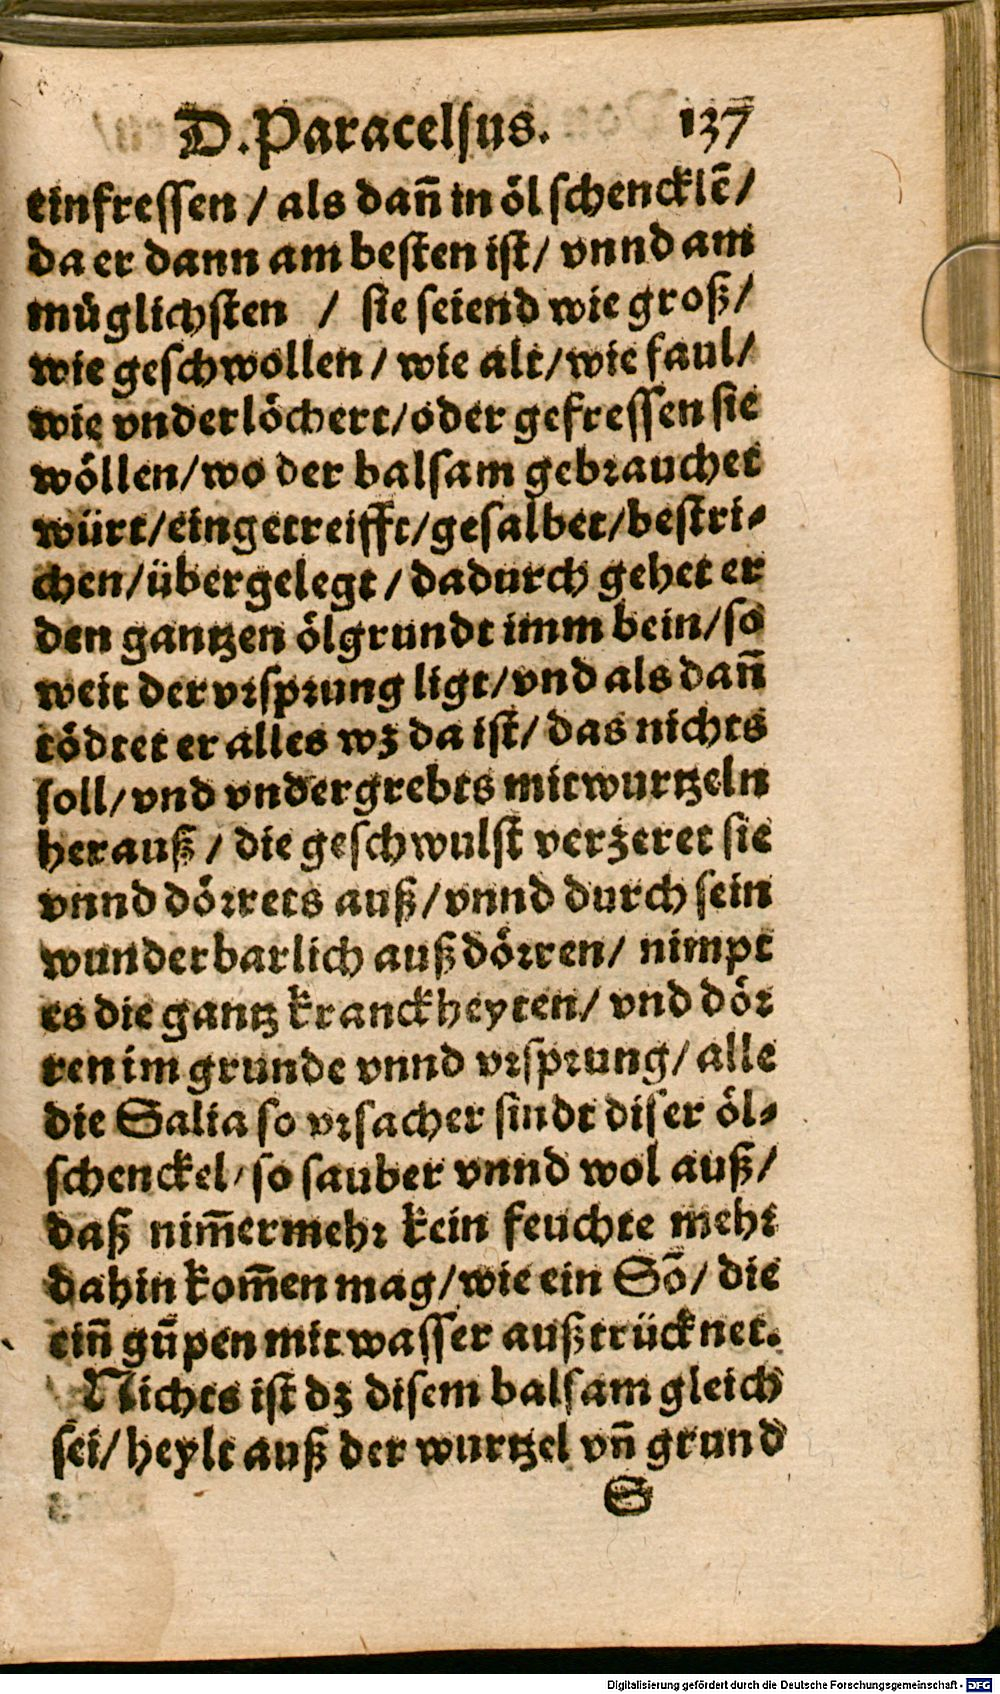 D. Paracelsus. 137
einfressen / als dañ in öl schencklẽ /
da er dann am besten ist / vnnd am
müglichsten / sie seiend wie groß /
wie geschwollen / wie alt / wie faul /
wie vnderlöchert / oder gefressen sie
wöllen / wo der balsam gebrauchet
würt / eingetreifft / gesalbet / bestri-
chen / übergelegt / dadurch gehet er
den gantzen ölgrundt imm bein / so
weit der vrsprung ligt / vnd als dañ
tödtet er alles wz da ist / das nichts
soll / vnd vndergrebts mit wurtzeln
herauß / die geschwulst verzeret sie
vnnd dörrets auß / vnnd durch sein
wunderbarlich außdörren / nimpt
es die gantz kranckheyten / vnd dör
ren im grunde vnnd vrsprung / alle
die Salia so vrsacher sindt diser öl-
schenckel / so sauber vnnd wol auß /
daß nim̃ermehr kein feuchte mehr
dahin kom̃en mag / wie ein Sõ / die
eiñ gũpen mit wasser außtrücknet.
Nichts ist dz disem balsam gleich
sei / heylt auß der wurtzel vñ grund
S
Digitalisierung gefördert durch die Deutsche Forschungsgemeinschaft - DFG